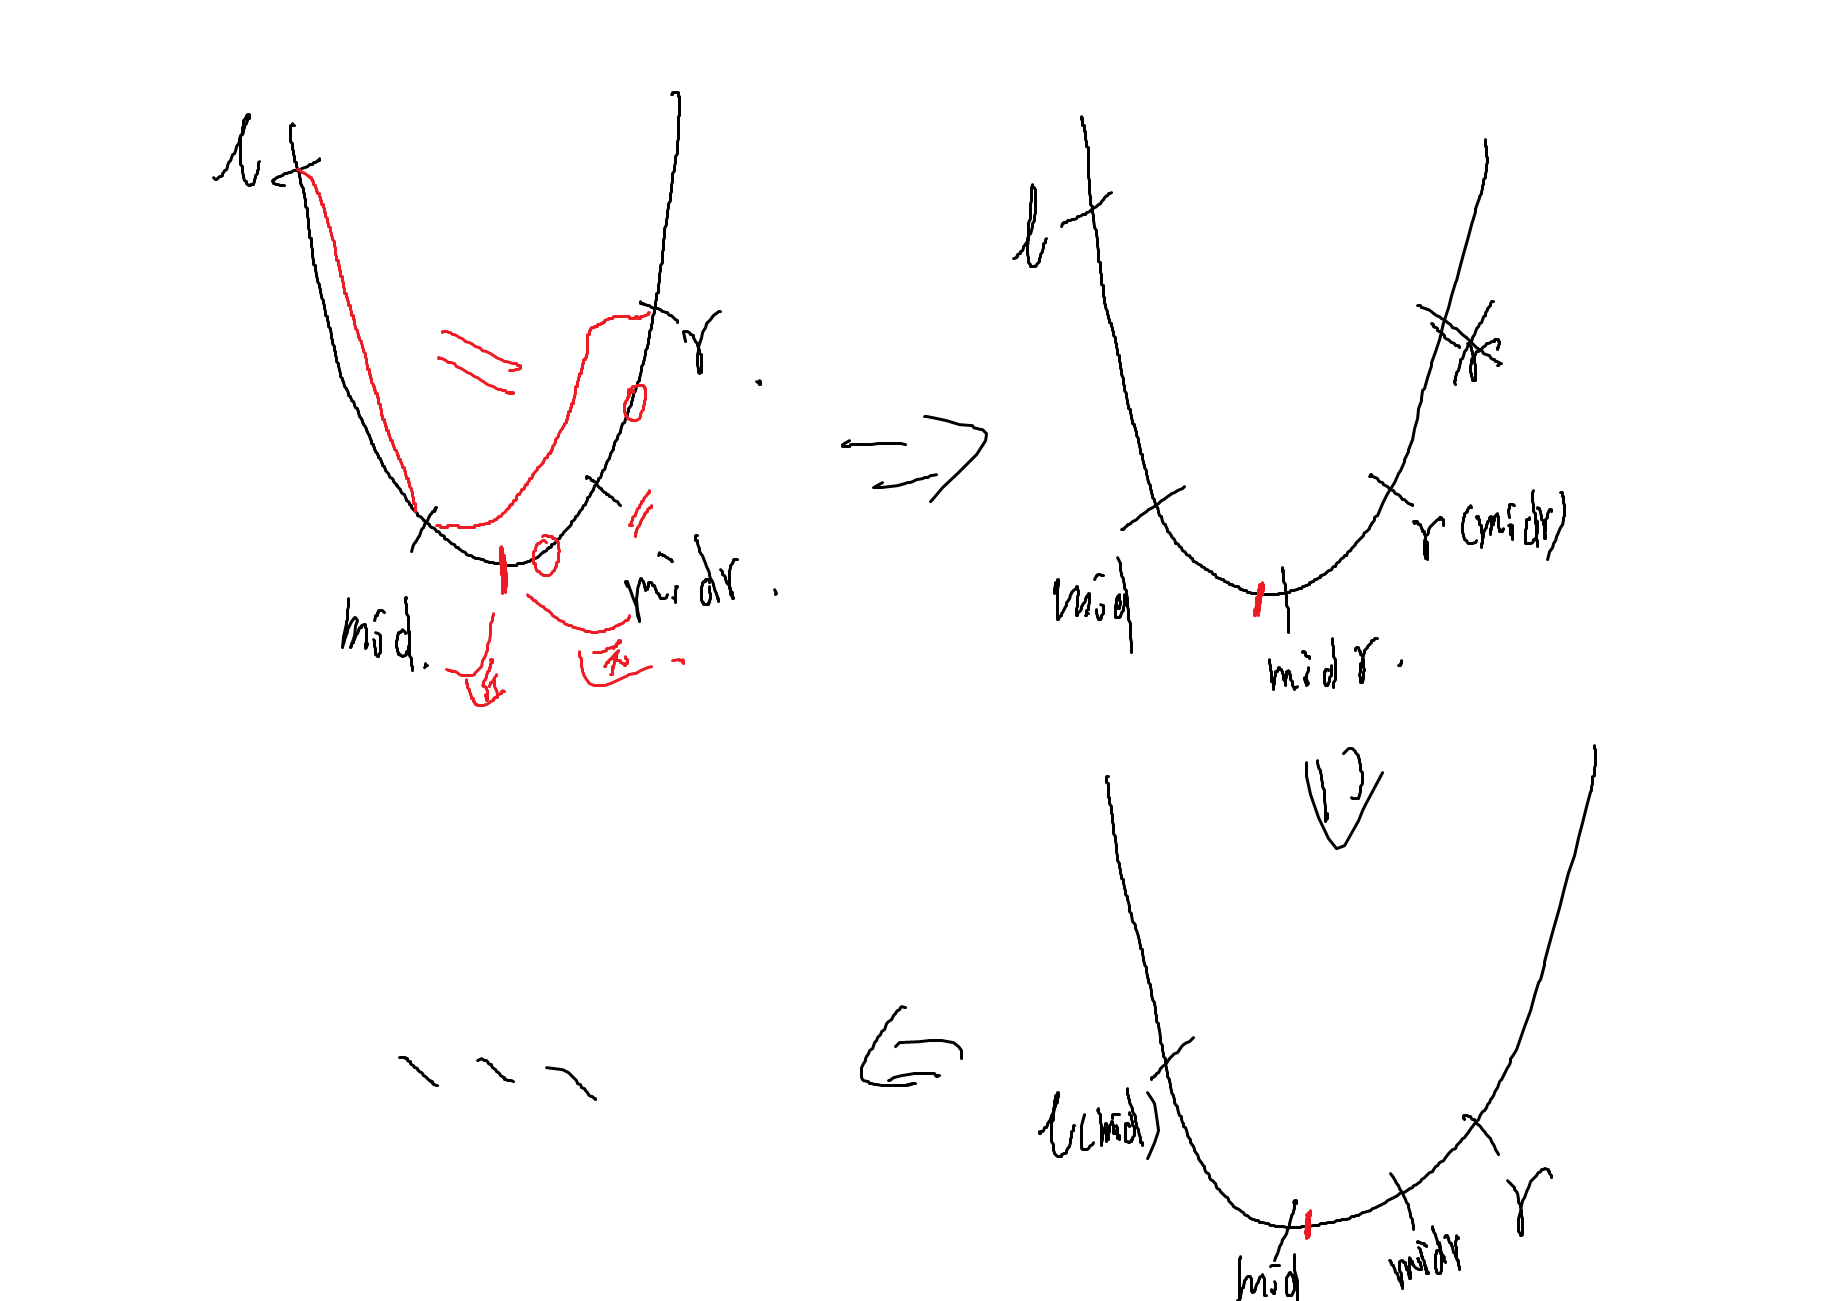 l
r.
mid.
midr.
l
r
mid
r (midr)
midr.
l(mid)
mid
midr
r